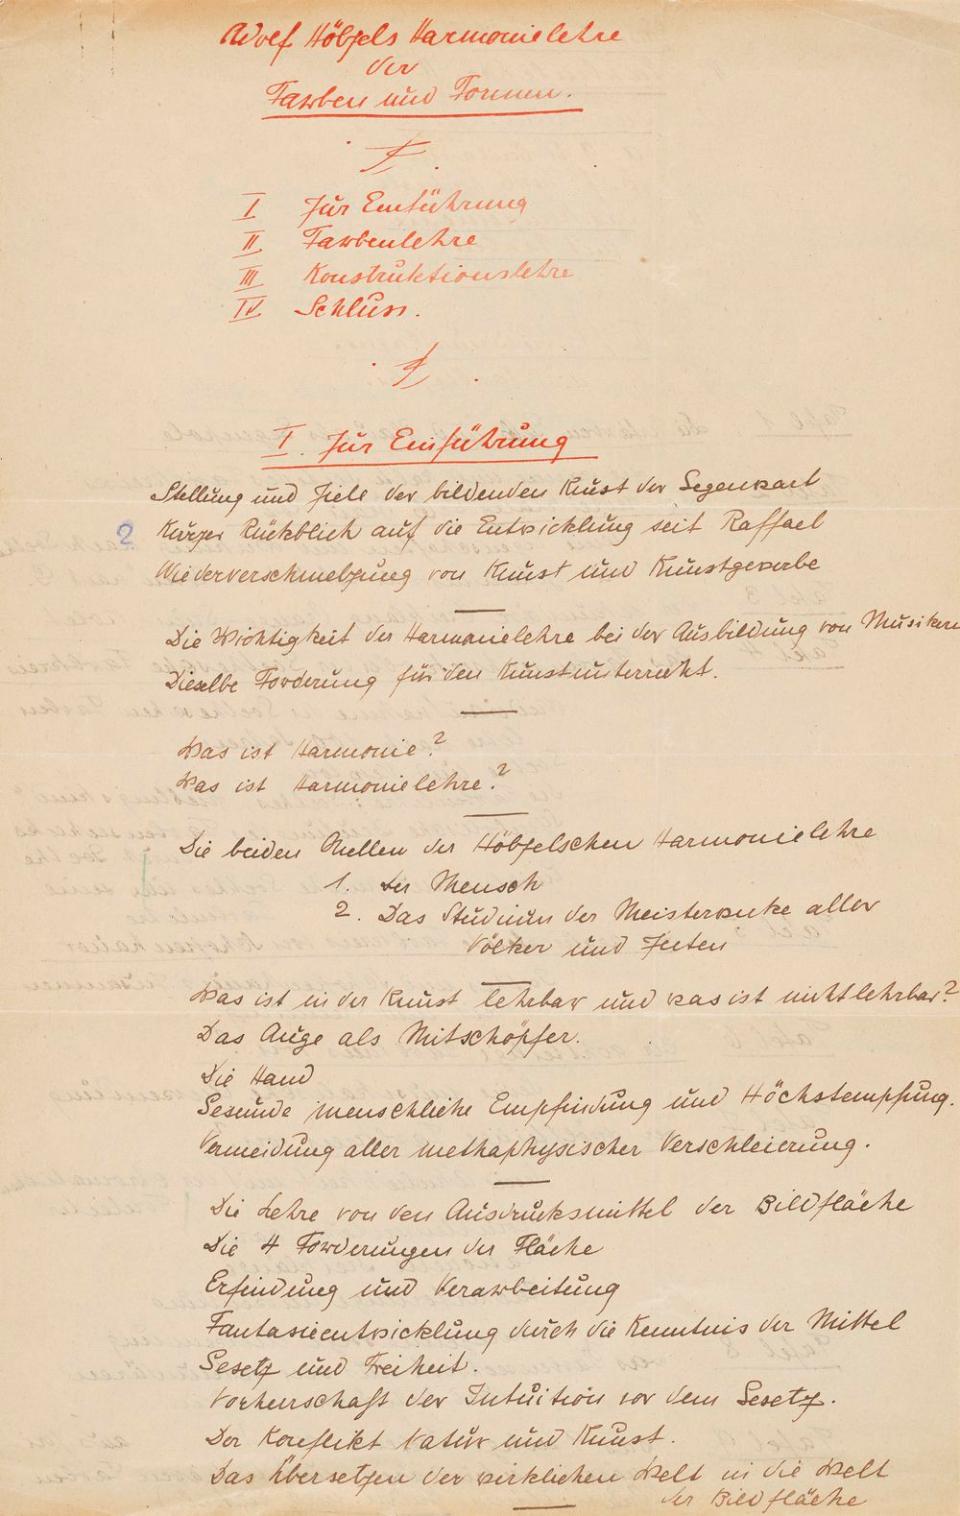 Adolf Hölzels Harmonielehre
der
Farben und Formen.
I Zur Einführung
II Farbenlehre
III Konstruktionslehre
IV Schluss.
I. Zur Einführung
Stellung und Ziele der bildenden Kunst der Gegenwart
2 Kurzer Rückblick auf die Entwicklung seit Raffael
Wiederverschmelzung von Kunst und Kunstgewerbe
Die Wichtigkeit der Harmonielehre bei der Ausbildung von Musikern
Dieselbe Forderung für den Kunstunterricht.
Was ist Harmonie?
Was ist Harmonielehre?
Die beiden Quellen der Hölzelschen Harmonielehre
1. Der Mensch
2. Das Studium der Meisterwerke aller
Völker und Zeiten
Was ist in der Kunst lehrbar und was ist nicht lehrbar?
Das Auge als Mitschöpfer.
Die Hand
Gesunde menschliche Empfindung und Höchstempfung.
Vermeidung aller methaphysischer Verschleierung.
Die Lehre von den Ausdrucksmittel der Bildfläche
Die 4 Forderungen der Fläche
Erfindung und Verarbeitung
Fantasieentwicklung durch die Kenntnis der Mittel
Gesetz und Freiheit.
Vorherrschaft der Intuition vor dem Gesetz.
Der Konflikt Natur und Kunst.
Das Übersetzen der wirklichen Welt in die Welt
der Bildfläche